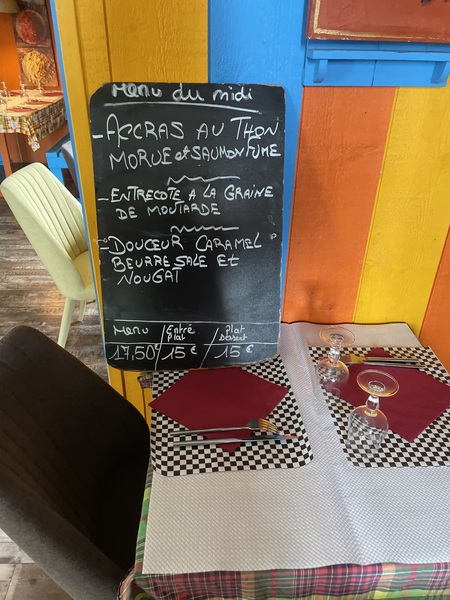 Menu du midi
- ACCRAS AU THON
MORUE et SAUMON FUME
- ENTRECOTE A LA GRAINE
DE MOUTARDE
- DOUCEUR CARAMEL
BEURRE SALE Et
NOUGAT
MENU / Entré Plat / Plat Dessert
17,50€ / 15€ / 15€